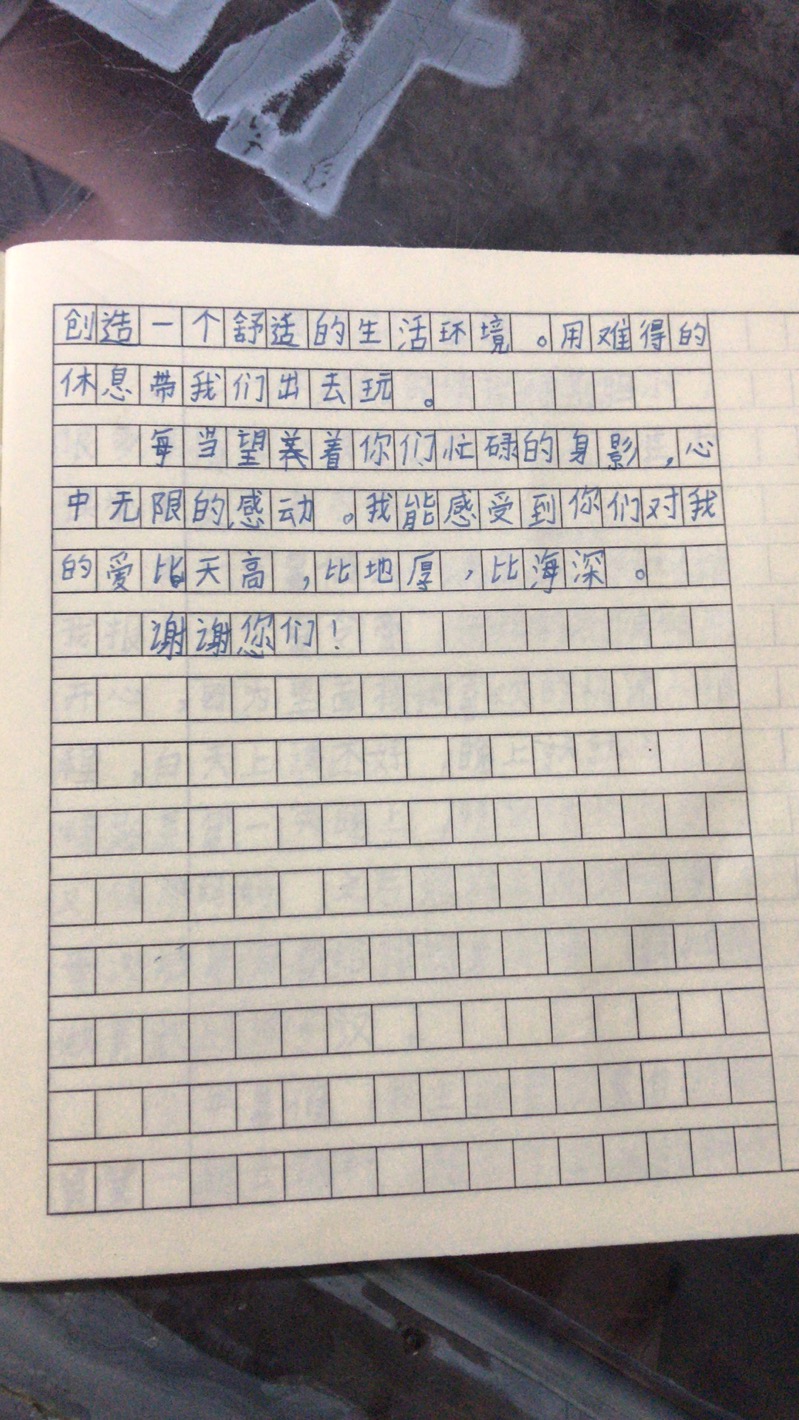 创造一个舒适的生活环境。用难得的
休息带我们出去玩。
每当望着你们忙碌的身影,心
中无限的感动。我能感受到你们对我
的爱比天高,比地厚,比海深。
谢谢您们!